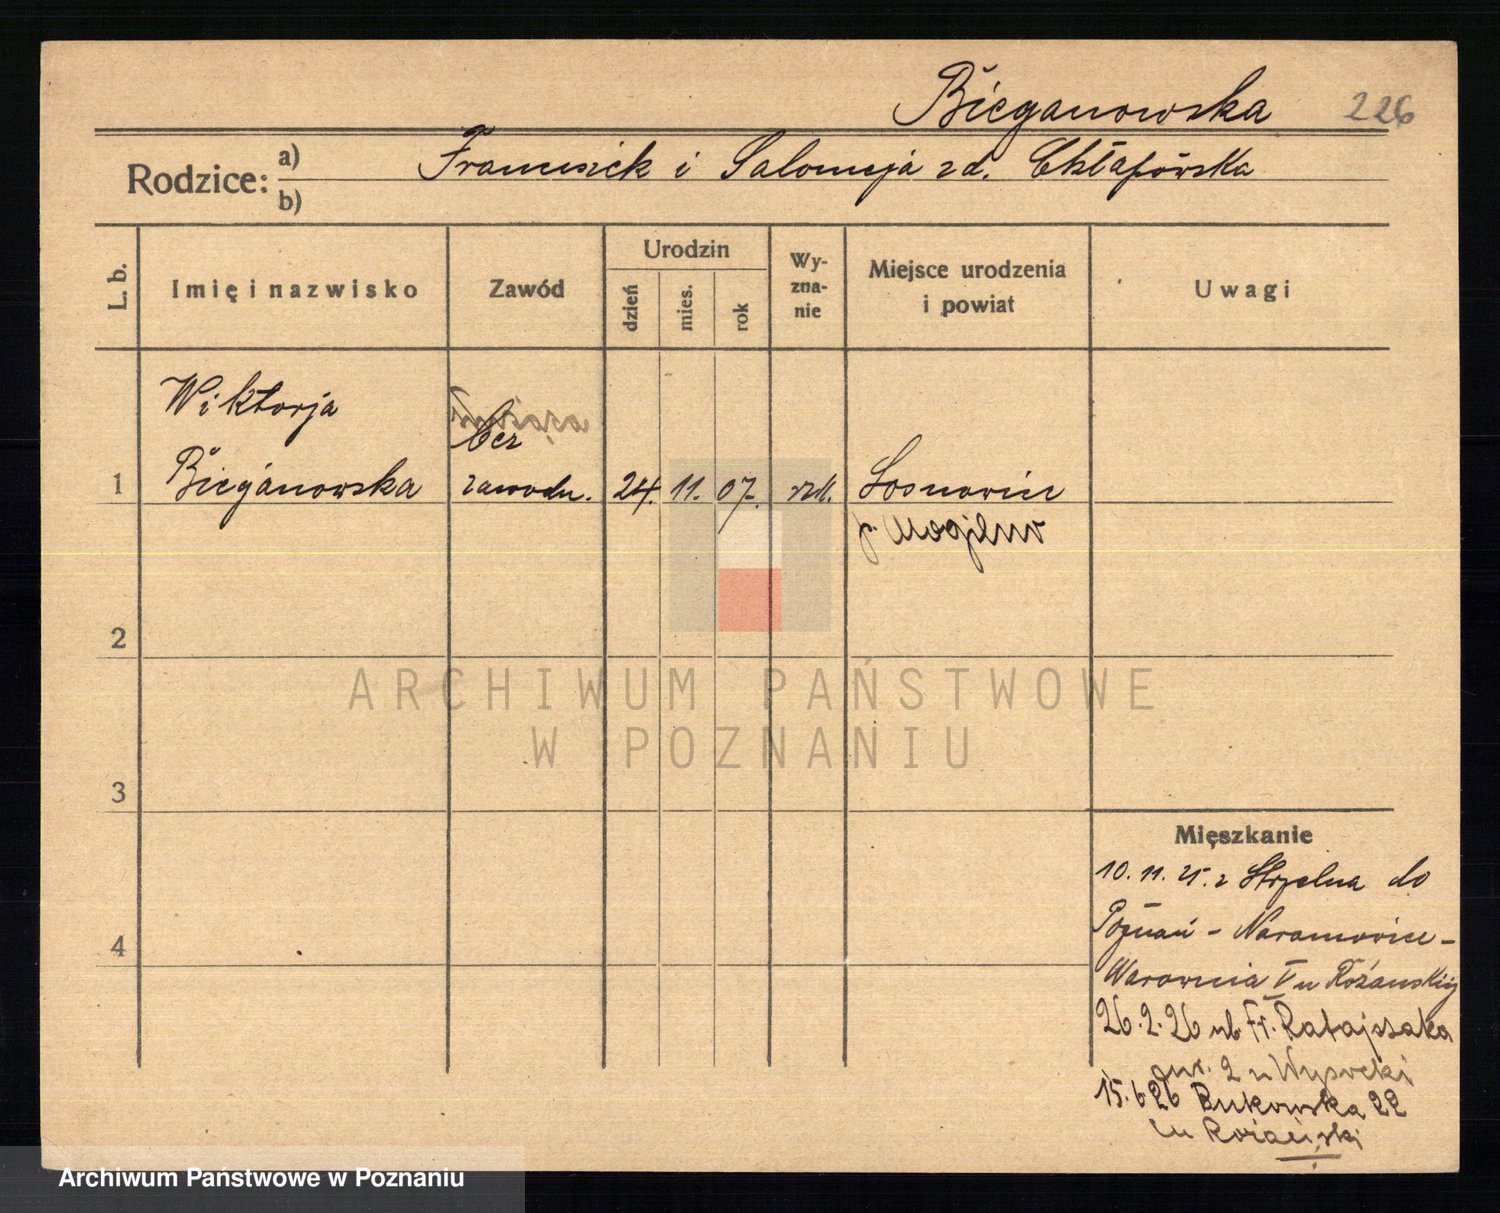 Bieganowska 226
Rodzice: a) Franciszek i Salomeja zd. Chłapówska
b)
L. b.
Imię i nazwisko
Zawód
Urodzin
dzień
mies.
rok
Wy-
zna-
nie
Miejsce urodzenia
i powiat
Uwagi
Wiktorja
bez
1 Bieganowska zawodu. 24. 11. 07. rzk. Sosnowiec
p. Mogilno
2
ARCHIWUM PAŃSTWOWE
W POZNANIU
3
Mięszkanie
10. 11. 25. z Strzelna do
4 Poznań - Naramowice -
Warownia V u Rożańskiej
26.2.26 ul Fr. Ratajczaka
2 u Wysocki
15.6 26 Bukowska 22
u Rożański
Archiwum Państwowe w Poznaniu